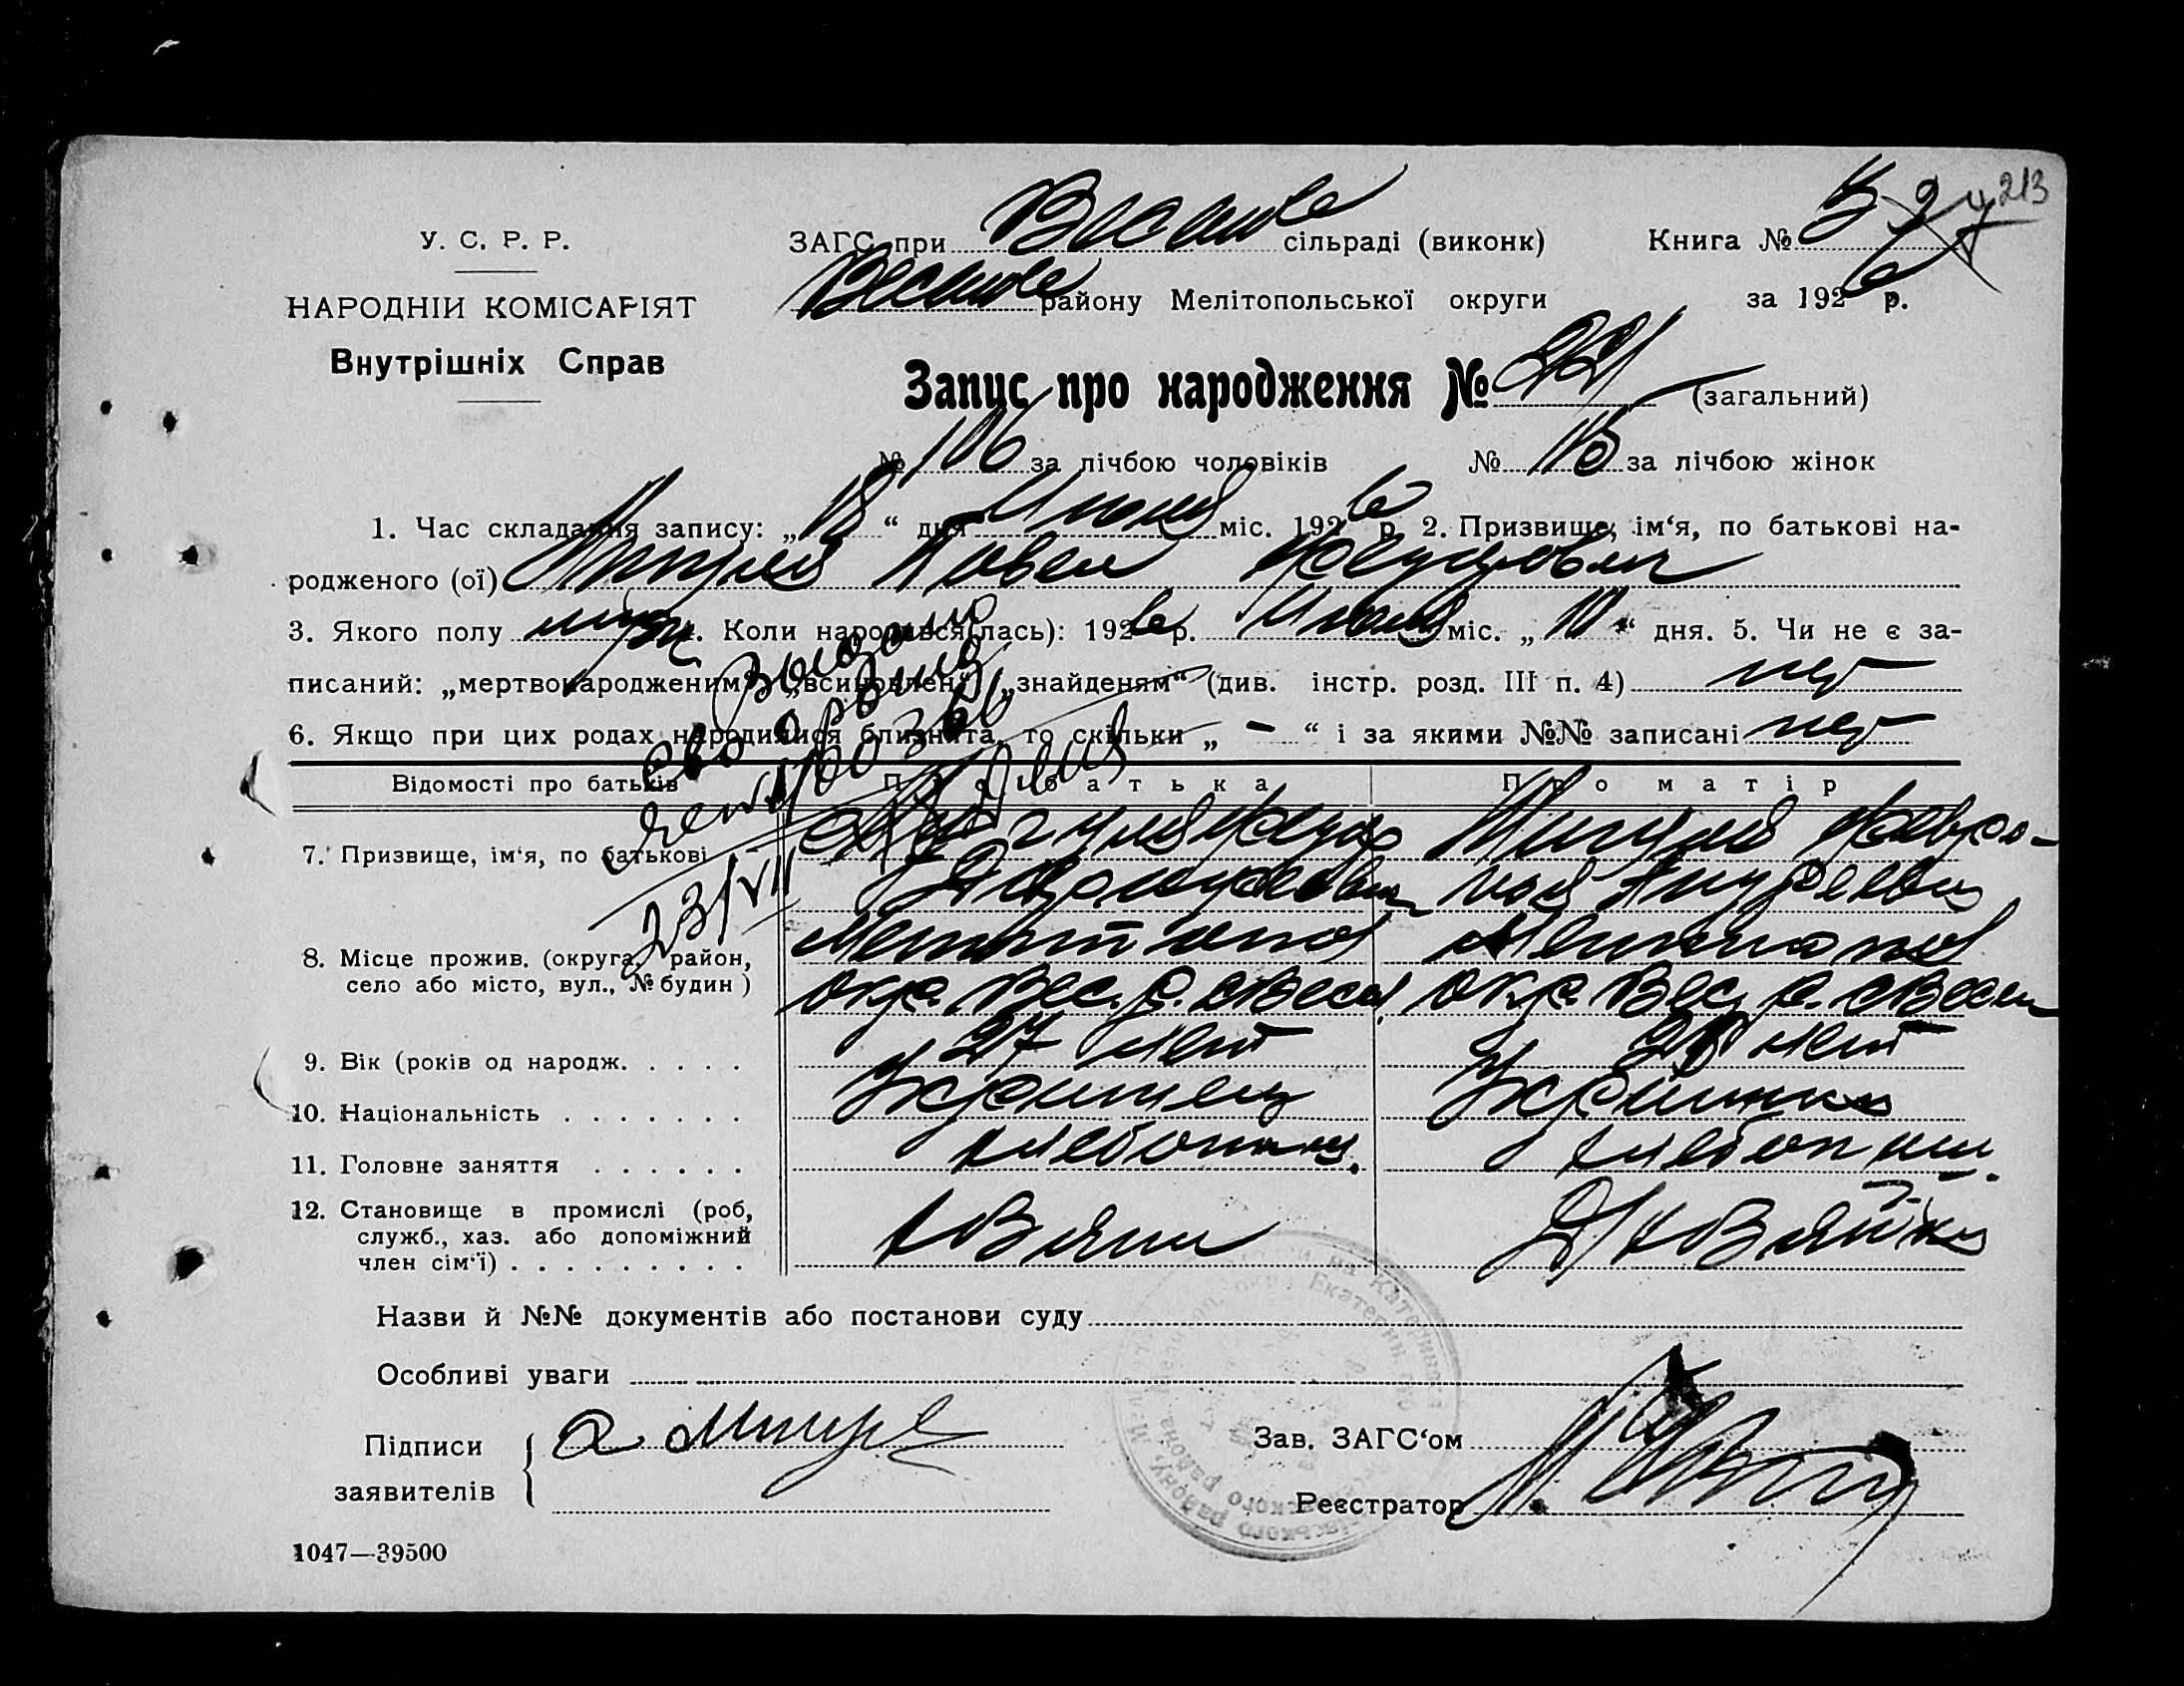 213
У. С. Р. Р.
ЗАГС при Веселе сільраді (виконк) Книга №
НАРОДНІЙ КОМІСАРІЯТ
Веселе району Мелітопольської округи за 1926 р.
Внутрішніх Справ
Запис про народження № 221 (загальний)
№ 106 за лічбою чоловіків № 115 за лічбою жінок
1. Час складання запису: „18“ дня міс. 1926 р. 2. Призвище, ім‘я, по батькові на-
родженого (ої) Мигуля Павел
3. Якого полу муж. 4. Коли народився(лась): 1926 р. міс. „10“ дня. 5. Чи не є за-
писаний: „мертвонародженим“, „всиновлен“, „знайденям“ (див. інстр. розд. III п. 4) нет
6. Якщо при цих родах народилися близнята, то скільки „ – “ і за якими №№ записані нет
Выдано
23/VII
Відомості про батьків Про батька Про матір
7. Призвище, ім‘я, по батькові
Мигуля
Мигуля Февро-
ния Андреевна
8. Місце прожив. (округа, район,
село або місто, вул., № будин)
Мелитопол
окр. Вес. р. с Весел
Мелитопол
окр. Вес. р. с Весел
9. Вік (років од народж. . . . . 27 лет лет
10. Національність . . . . . . . Украинец Украинка
11. Головне заняття . . . . . . хлебопаш. хлебопаш.
12. Становище в промислі (роб,
служб., хаз. або допоміжний
член сім‘ї) . . . . . . . . . . хозяин хозяйка
Назви й №№ документів або постанови суду
Особливі уваги
Підписи
заявителів
Зав. ЗАГС‘ом
Реєстратор
1047—39500